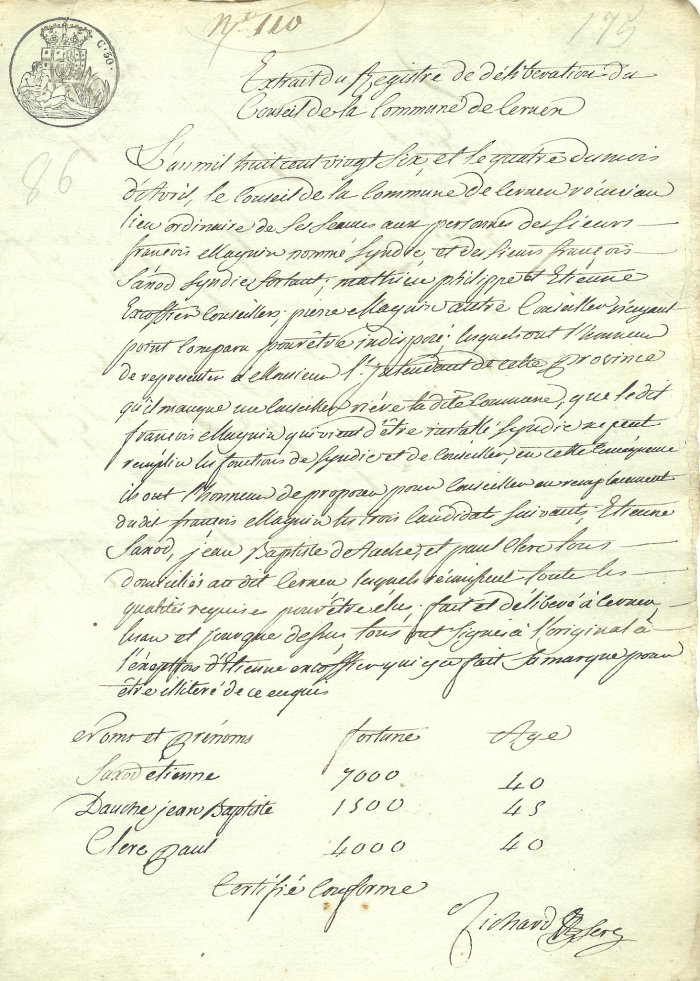 n.° 110
175
C. 50.
86
Extrait du Registre de délibération du
Conseil de la Commune de Cernex
L'an mil huit cent vingt six, et le quatre du mois
d'Avril, le Conseil de la Commune de Cernex réuni au
lieu ordinaire de ses séances aux personnes des Sieurs
françois Magnin nommé Syndic, et des Sieurs françois
Saxod Syndic sortant; mathieu philippe et Etienne
Excoffier Conseillers; pierre Magnin autre Conseiller n'ayant
point Comparu pour être indisposé; lesquels ont l'honneur
de représenter à Monsieur l'Intendant de cette Province
qu'il manque un Conseiller rière la dite Commune, que le dit
françois Magnin qui vient d'être installé Syndic ne peut
remplir les fonctions de Syndic et de Conseiller, en cette Conséquence
ils ont l'honneur de proposer pour Conseiller en remplacement
du dit françois Magnin les trois Candidats suivants, Etienne
Saxod, jean Baptiste et paul Clerc tous
domiciliés au dit Cernex lesquels réunissent toute les
qualités requises pour être élus, fait et délibéré à Cernex
lieu et jour que dessus tous ont signé à l'original à
l'éxception d'Etienne excoffier qui y a fait Sa marque pour
être illiteré de ce enquis
Noms et Prénoms fortune Age
Saxod étienne 7000 40
Dauche jean Baptiste 1500 45
Clerc paul 4000 40
Certifié Conforme
Richard